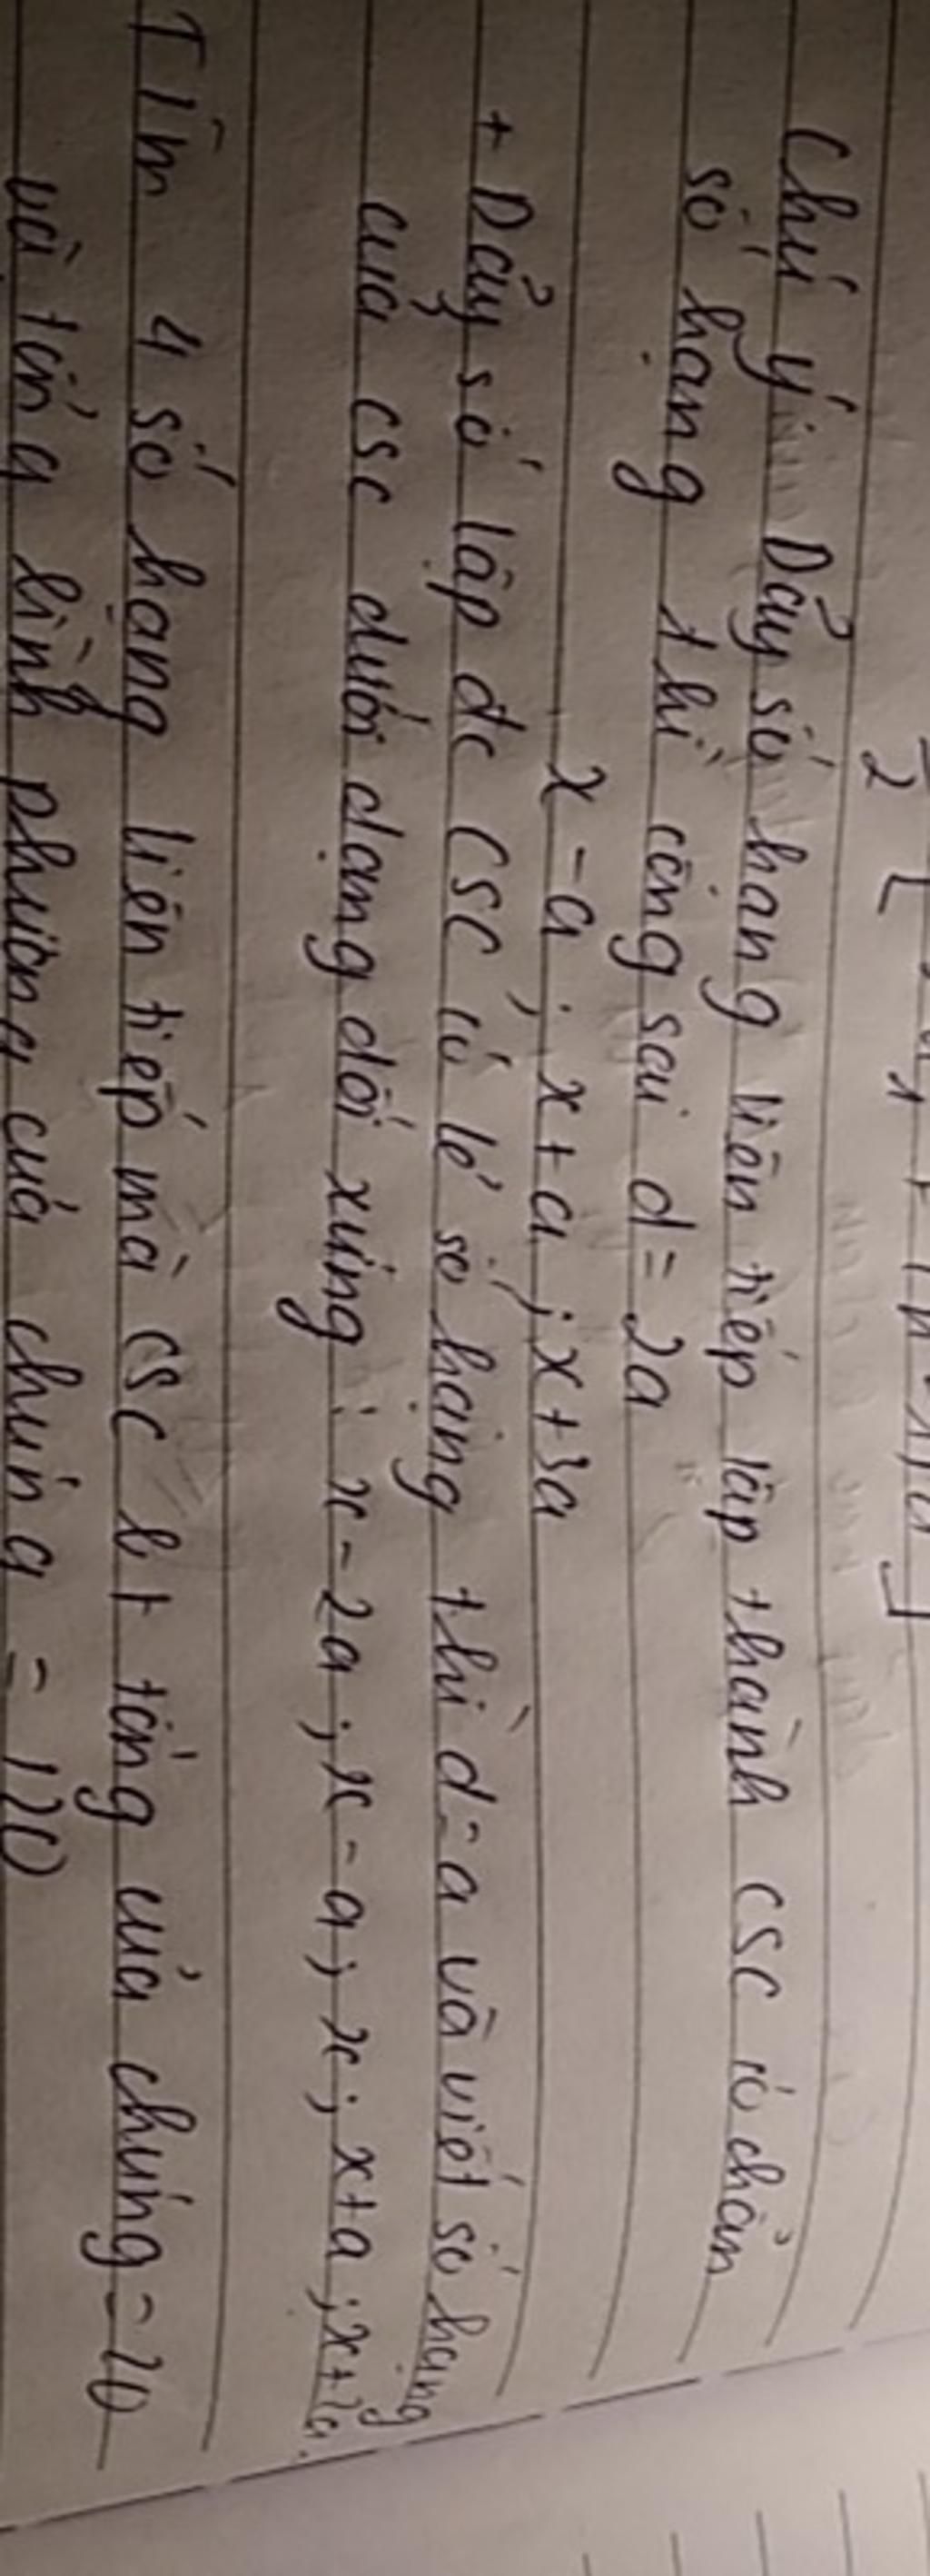 Chú ý: Dãy số hạng liên tiếp lập thành CSC có chẵn
số hạng thì công sai d = 2a
x - a ; x + a ; x + 3a
+ Dãy số lập đc CSC có lẻ số hạng thì d = a và viết số hạng
của CSC dưới dạng đối xứng : x - 2a ; x - a ; x ; x + a ; x + 2a.
Tìm 4 số hạng liên tiếp mà CSC bt tổng của chúng = 20
và tổng bình phương của chúng = 120